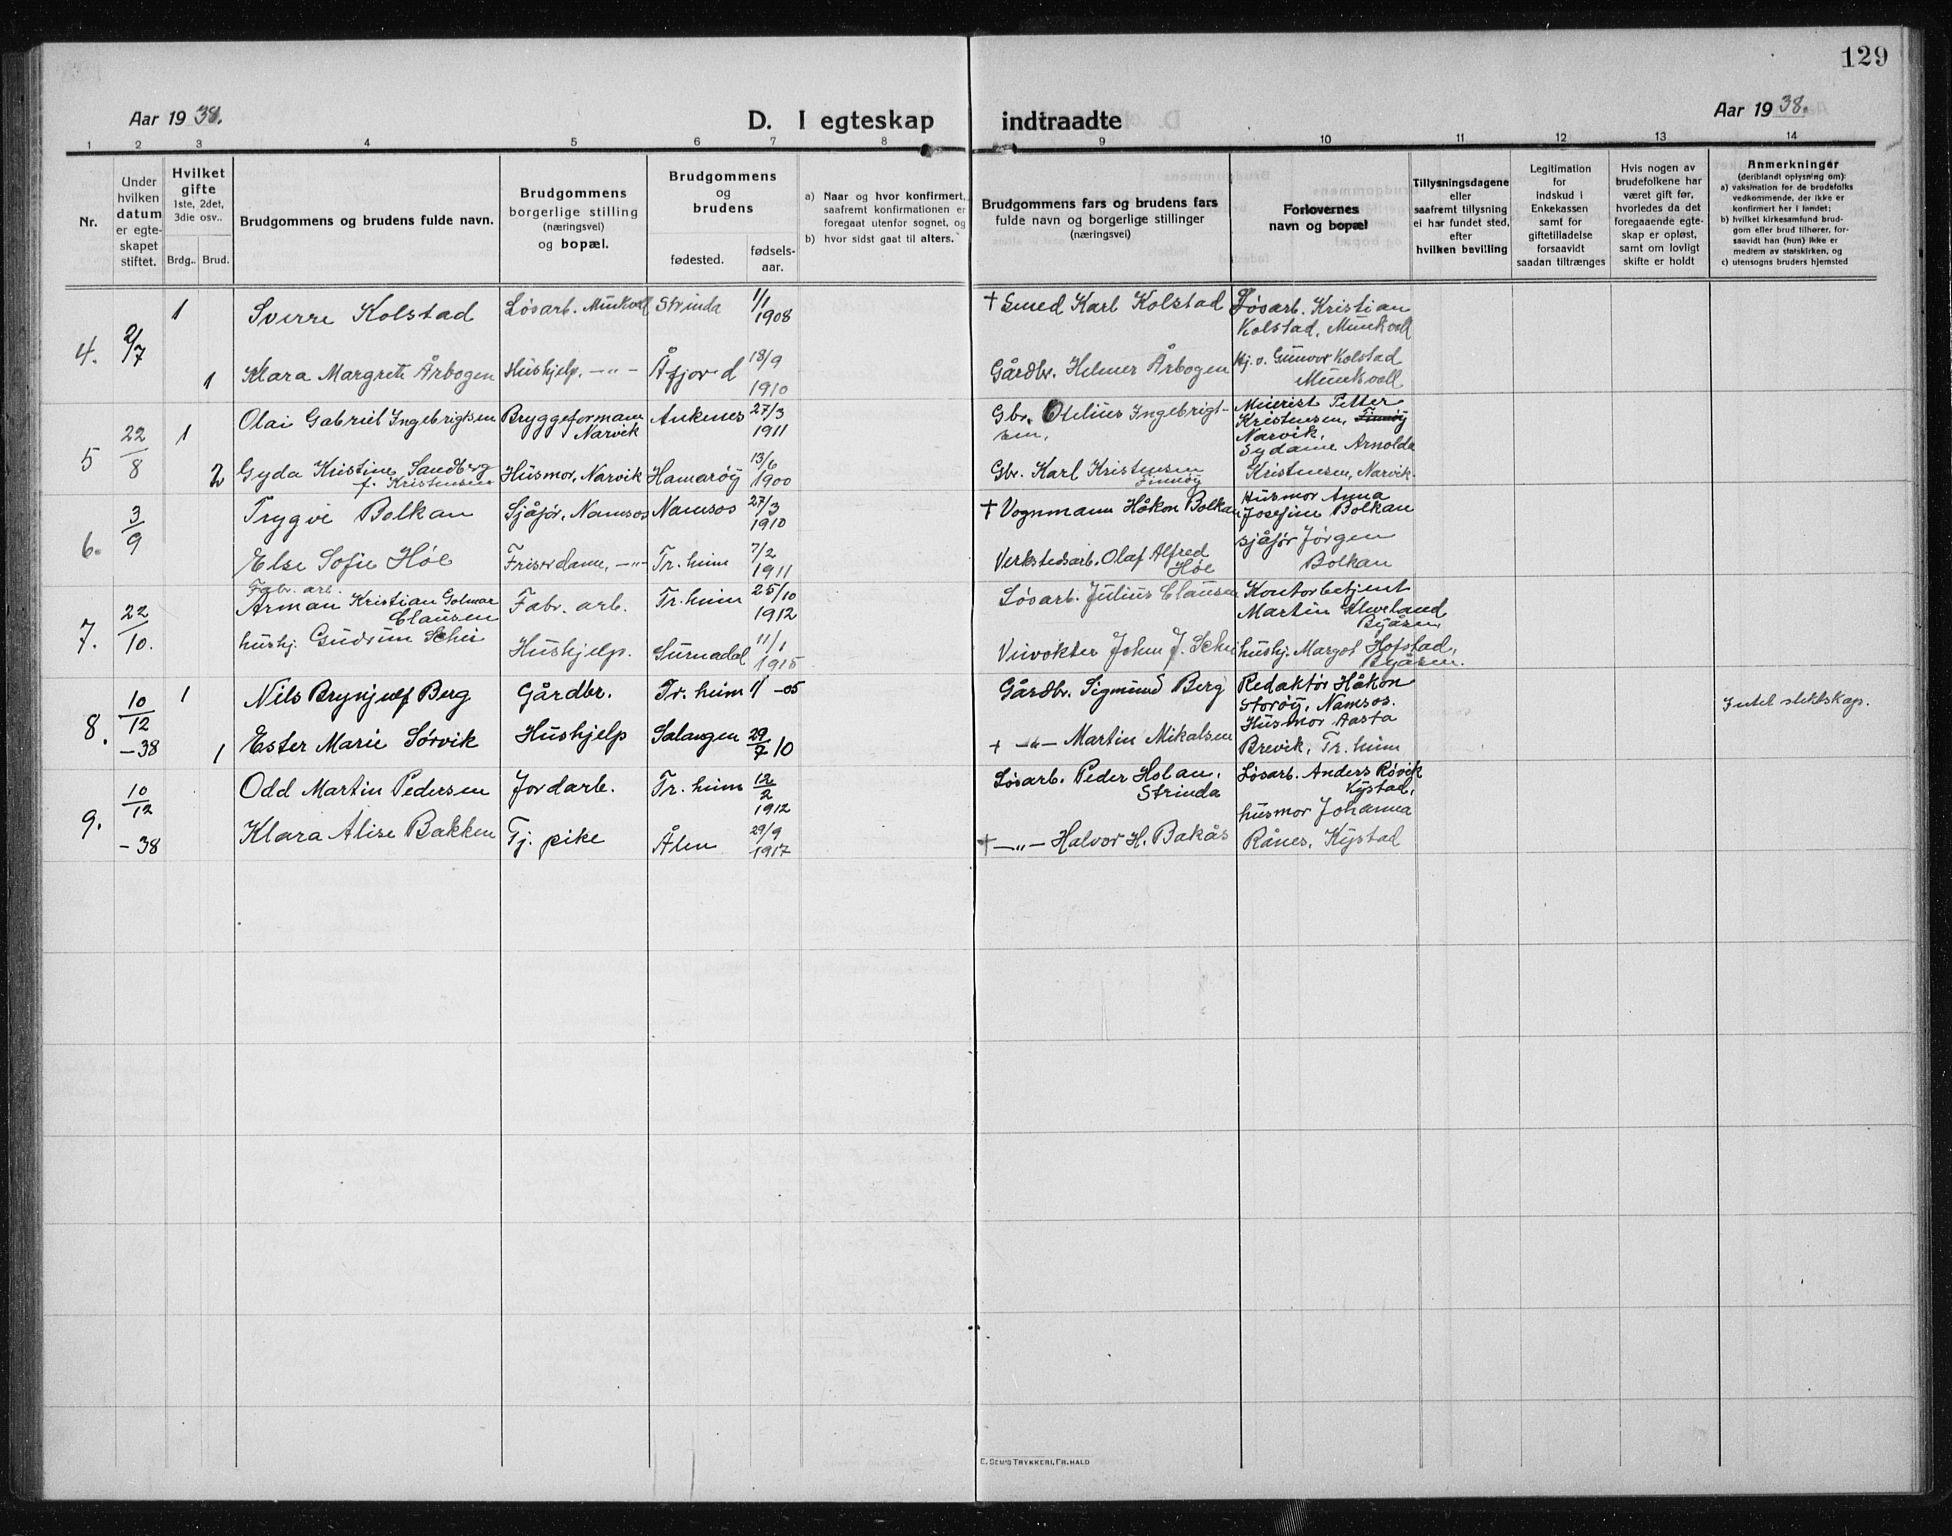 129
Aar 1938.
D. I egteskap indtraadte
Aar 1938.
1 2 3 4 5 6 7 8 9 10 11 12 13 14
Nr.
Under hvilken datum er egte-skapet stiftet.
Hvilket gifte
1ste, 2det, 3die osv..
Brdg.. Brud.
Brudgommens og brudens fulde navn.
Brudgommens borgerlige stilling (næringsvei) og bopæl.
Brudgommens og brudens
fødested.
fødsels-aar.
a) Naar og hvor konfirmert, saafremt konfirmationen er foregaat utenfor sognet, og
b) hvor sidst gaat til alters.
Brudgommens fars og brudens fars fulde navn og borgerlige stillinger (næringsvei)
Forlovernes navn og bopæl
Tillysningsdagene eller saafremt tillysning ei har fundet sted, efter hvilken bevilling
Legitimation for indskud i Enkekassen samt for giftetilladelse forsaavidt saadan tiltrænges
Hvis nogen av brudefolkene har været gift før, hvorledes da det foregaaende egte-skap er opløst, samt om lovligt skifte er holdt
Anmerkninger
(deriblandt oplysning om):
a) vaksination for de brudefolks vedkommende, der ikke er konfirmert her i landet;
b) hvilket kirkesamfund brud-gom eller brud tilhører, for-saavidt han (hun) ikke er medlem av statskirken, og
c) utensogns bruders hjemsted
4. 2/7 1 Sverre Kolstad Løsarb. Munkvoll Strinda 1/1 1908 † Smed Karl Kolstad Løsarb. Kristian Kolstad, Munkvoll
1 Klara Margrete Årbogen Hushjelp, -"- Åfjord 18/9 1910 Gårdbr. Helmer Årbogen Hj. v. Gunvor Kolstad Munkvoll
5 22/8 1 Olai Gabriel Ingebrigtsen Bryggeformann Narvik Ankenes 27/3 1911 Gbr. Otelius Ingebrigt-sen, Meierist Petter Kristensen, Finnøy Narvik,
2 Gyda Kristine Sandberg f. Kristensen Husmor, Narvik Hamarøy 13/6 1900 Gbr. Karl Kristensen Finnøy Sydame Arnolda Kristensen, Narvik.
6. 3/9 Trygve Bolkan Sjåfør, Namsos Namsos 27/3 1910 † Vognmann Håkon Bolkan Husmor Anna Josefine Bolkan
Else Sofie Høe Frisørdame, -"- Tr.heim 7/2 1911 Verkstedsarb. Olaf Alfred Høe sjåfør Jørgen Bolkan
7. 22/10. Fabr. arb. Arman Kristian Golmar Clausen Fabr. arb. Tr.heim 25/10 1912 Løsarb. Julius Clausen Kontorbetjent Martin Kleveland Byåsen,
hushj. Gudrun Schei Hushjelp. Surnadal 11/1 1915 Veivokter John J. Schei hushj. Margot Hofstad, Byåsen.
8. 10/12 -38 1 Nils Brynjulf Berg Gårdbr. Tr.heim -05 Gårdbr. Sigmund Berg Redaktør Håkon Storøy, Namsos. Intet slektskap.
1 Ester Marie Sørvik Hushjelp Salangen 29/7 10 + -"- Martin Mikalsen Husmor Aasta Brevik, Tr.heim
9. 10/12 -38 Odd Martin Pedersen Jordarb. Tr.heim 12/2 1912 Løsarb. Peder Holan, Strinda Løsarb. Anders Røvik Kystad,
Klara Alise Bakken Tj. pike Ålen 29/9 1917 † -"- Halvor H. Bakås husmor Johanna Rånes, Kystad
E. Sem's Trykkeri, Fr.hald